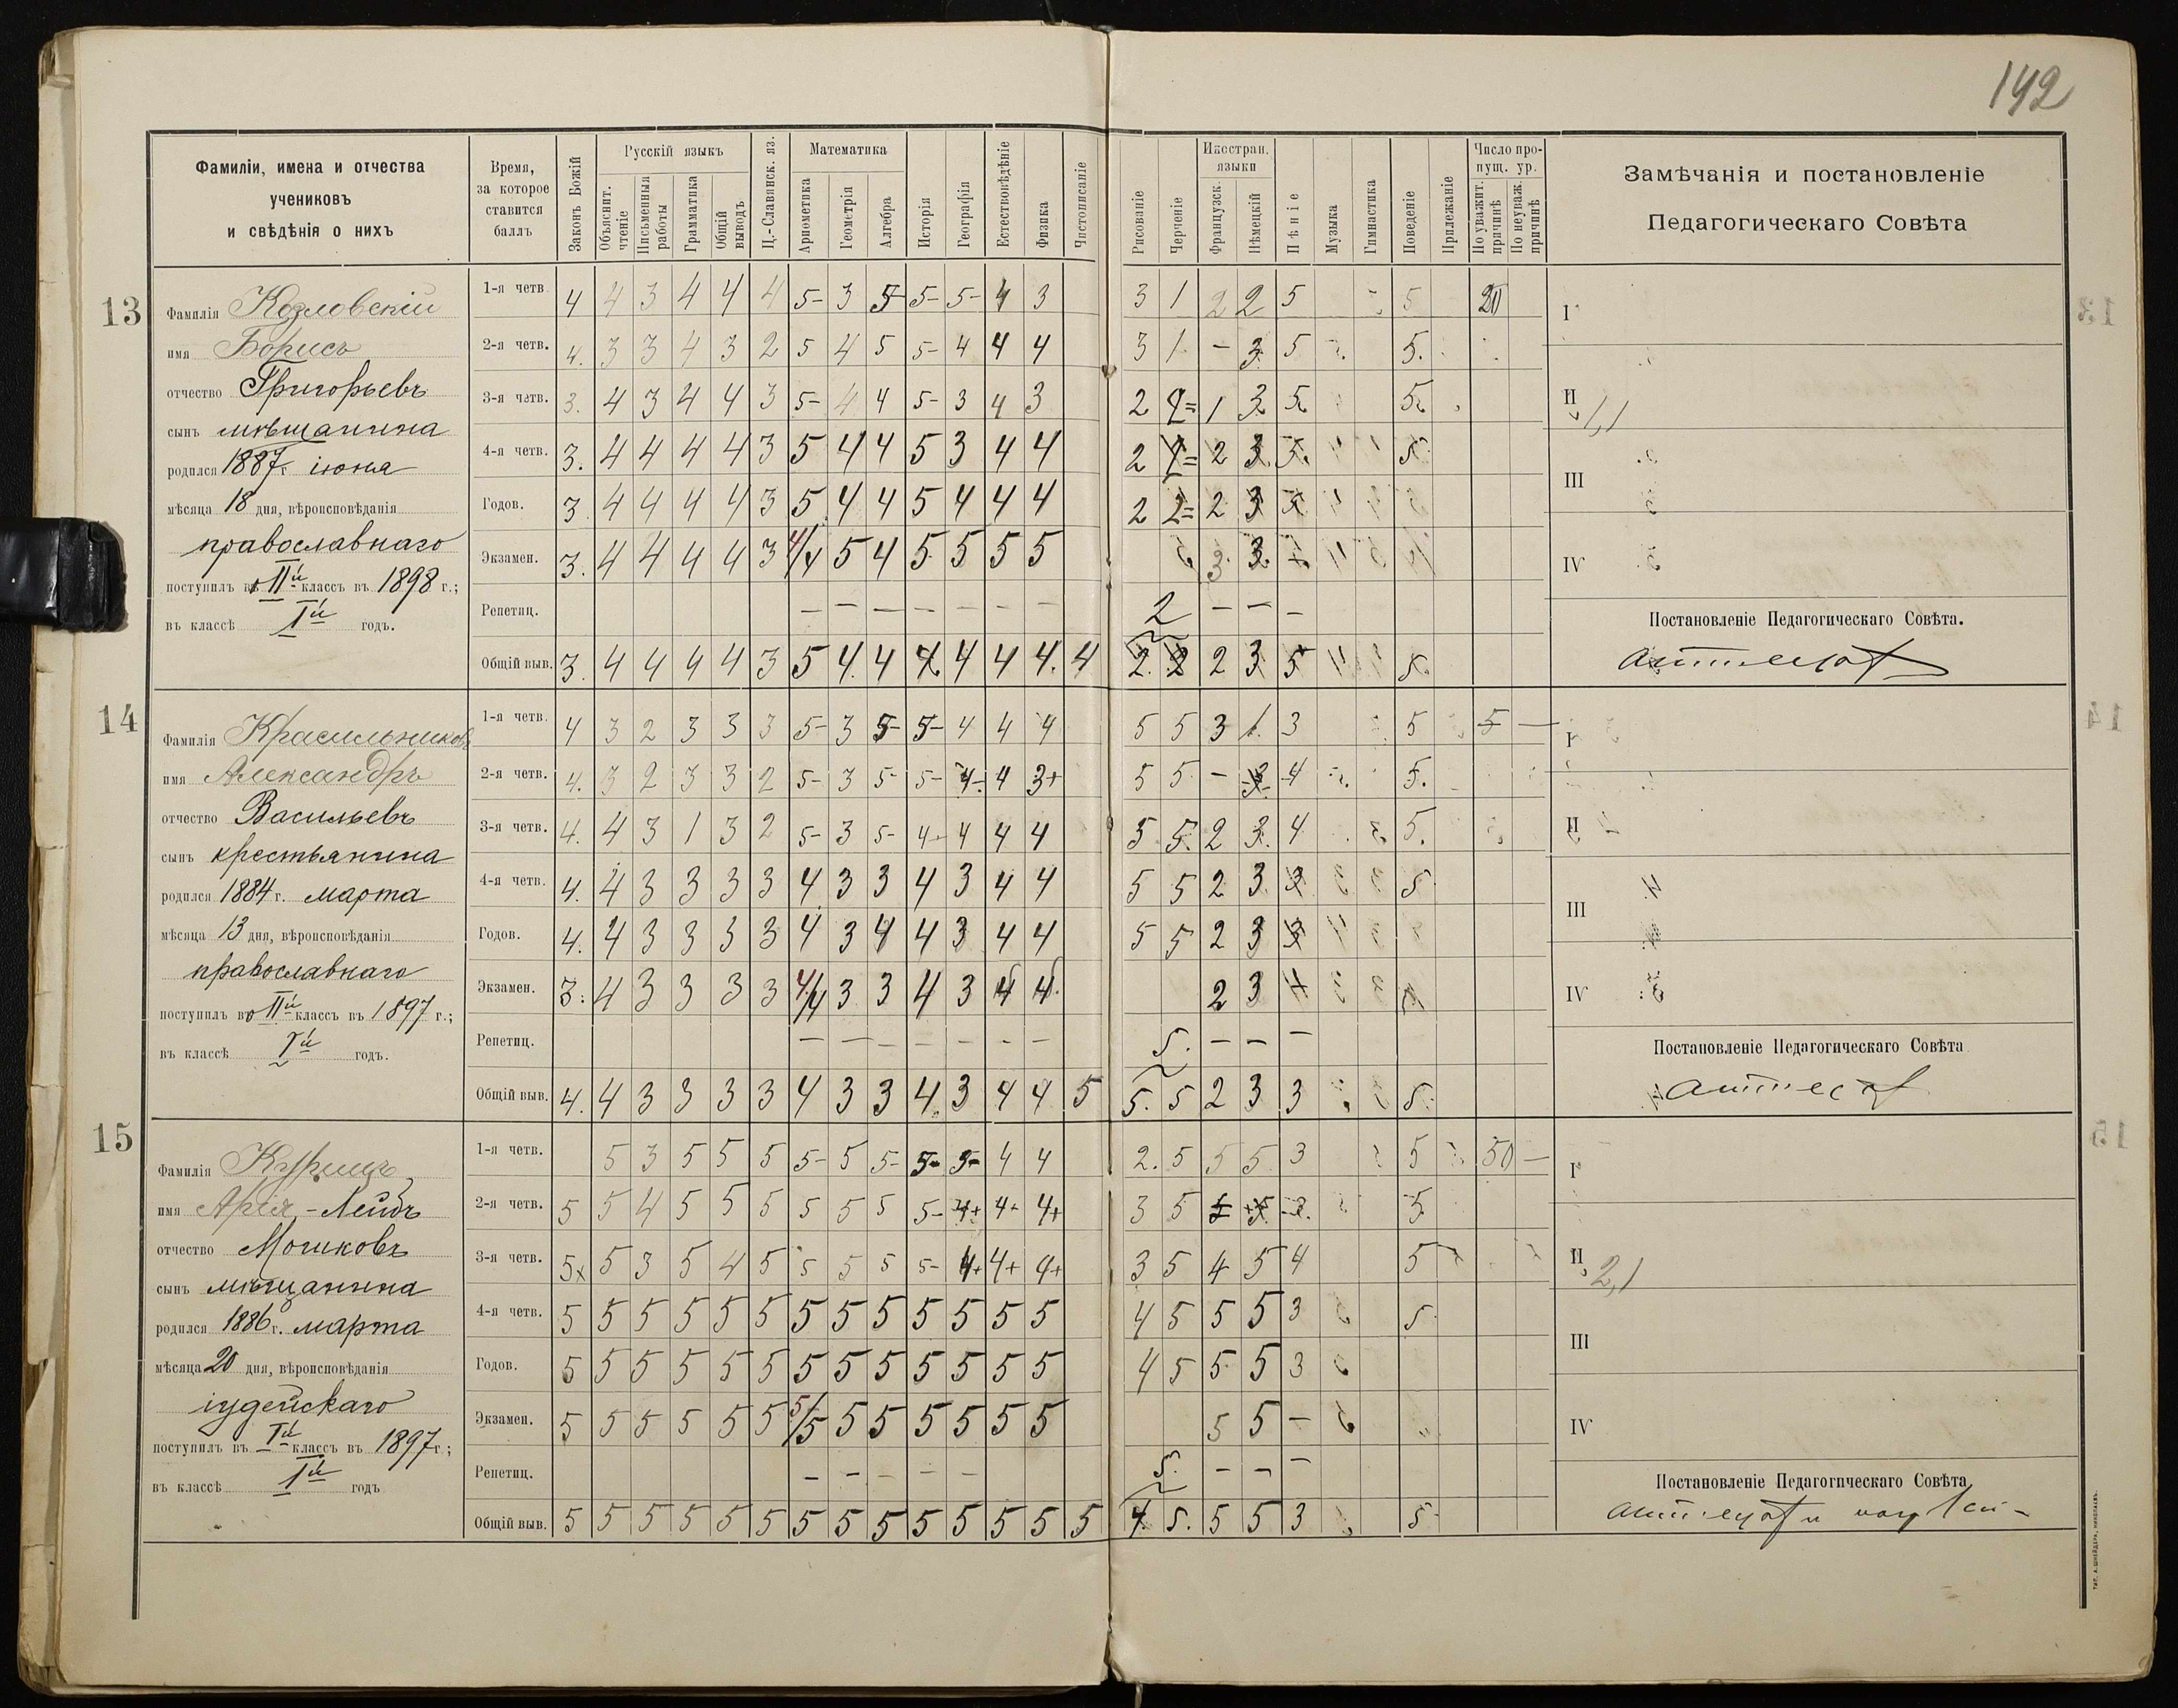 192
Фамиліи, имена и отчества
учениковъ
и свѣдѣнія о нихъ
Время,
за которое
ставится
баллъ
Законъ Божій
Русскій языкъ
Объяснит. чтеніе
Письменныя работы
Грамматика
Общій выводъ
Ц.-Славянск. яз.
Математика
Ариѳметика
Геометрія
Алгебра
Исторія
Географія
Естествовѣдѣніе
Физика
Чистописаніе
Рисованіе
Черченіе
Иностран. языки
Французск.
Нѣмецкій
Пѣніе
Музыка
Гимнастика
Поведеніе
Прилежаніе
Число пропущ. ур.
По уважит. причинѣ
По неуваж. причинѣ
Замѣчанія и постановленіе
Педагогическаго Совѣта
13
Фамилія Козловскій
имя Борисъ
отчество Григорьевъ
сынъ мѣщанина
родился 1887 г. іюня
мѣсяца 18 дня, вѣроисповѣданія
православнаго
поступилъ во IIй классъ въ 1898 г.;
въ классѣ Iй годъ.
1-я четв. 4 4 3 4 4 4 5- 3 5- 5- 5- 4 3 3 1 2 2 5 5 20
2-я четв. 4. 3 3 4 3 2 5 4 5 5- 4 4 4 3 1 - 3. 5 5.
3-я четв. 3. 4 3 4 4 3 5- 4 4 5- 3 4 3 2 2= 1 3 5 5.
4-я четв. 3. 4 4 4 4 3 5 4 4 5 3 4 4 2 2= 2 3. 5. 5
Годов. 3. 4 4 4 4 3 5 4 4 5 4 4 4 2 2= 2 3
Экзамен. 3. 4 4 4 4 3 4/4 5 4 5 5 5 5 3. 3.
Репетиц. — — — — — — — 2 — — —
Общій выв. 3. 4 4 4 4 3 5 4. 4 4 4 4. 4 2. 2 2 3 5 5.
I
II 1,1
III
IV
Постановленіе Педагогическаго Совѣта.
аттестат
14
Фамилія Красильниковъ
имя Александръ
отчество Васильевъ
сынъ крестьянина
родился 1884 г. марта
мѣсяца 13 дня, вѣроисповѣданія
православнаго
поступилъ во IIй классъ въ 1897 г.;
въ классѣ Iй годъ.
1-я четв. 4 3 2 3 3 3 5- 3 5- 5- 4 4 4 5 5 3 1. 3 5 5 —
2-я четв. 4. 3 2 3 3 2 5- 3 5- 5- 4- 4 3+ 5 5 - 3 4 5.
3-я четв. 4. 4 3 1 3 2 5- 3 5- 4- 4 4 4 5 5. 2 3. 4 5.
4-я четв. 4. 4 3 3 3 3 4 3 3 4 3 4 4 5 5 2 3. 3 5
Годов. 4. 4 3 3 3 3 4 3 4 4 3 4 4 5 5 2 3 3
Экзамен. 3. 4 3 3 3 3 4/4 3 3 4 3 4 4. 2 3
Репетиц. — — — — — — — 5. — — —
Общій выв. 4. 4 3 3 3 3 4 3 3 4. 3 4 4 5 5. 5 2 3 3 5.
I
II
III
IV
Постановленіе Педагогическаго Совѣта
аттестат
15
Фамилія Курицъ
имя Арія-Лейбъ
отчество Мошковъ
сынъ мѣщанина
родился 1886 г. марта
мѣсяца 20 дня, вѣроисповѣданія
іудейскаго
поступилъ въ Iй классъ въ 1897 г.;
въ классѣ Iй годъ
1-я четв. 5 3 5 5 5 5- 5 5- 5- 5- 4 4 2. 5 5 5 3 5 50 —
2-я четв. 5 5 4 5 5 5 5 5 5 5- 4+ 4+ 4+ 3 5 5 5 3. 5
3-я четв. 5х 5 3 5 4 5 5 5 5 5- 4+ 4+ 4+ 3 5 4 5 4 5
4-я четв. 5 5 5 5 5 5 5 5 5 5 5 5 5 4 5 5 5 3 5
Годов. 5 5 5 5 5 5 5 5 5 5 5 5 5 4 5 5 5 3
Экзамен. 5 5 5 5 5 5 5/5 5 5 5 5 5 5 5 5 —
Репетиц. — — — — — 5. — — —
Общій выв. 5 5 5 5 5 5 5 5 5 5 5 5 5 5 4. 5. 5 5 3 5
I
II 2,1
III
IV
Постановленіе Педагогическаго Совѣта
аттестат и
ТИП. А. ШНЕЙДЕРА, НИКОЛАЕВЪ.